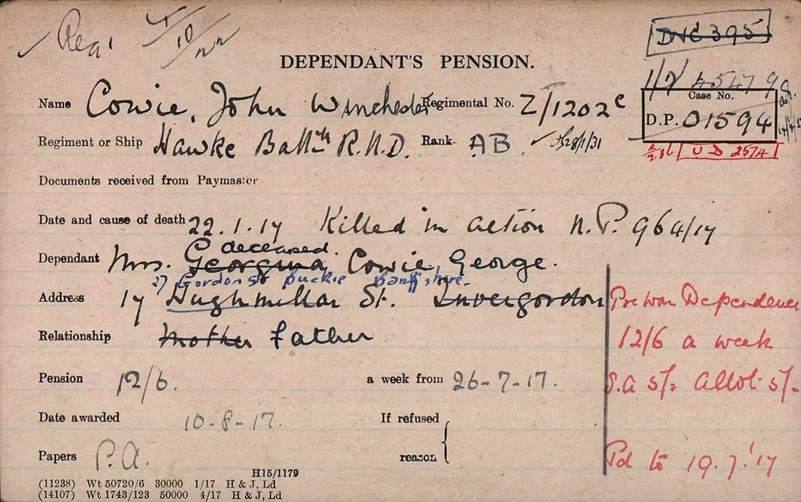 Real 4/10/22
D.N.C 395
DEPENDANT'S PENSION.
Name Cowie, John Winchester Regimental No. Z/1202c
Case No.
D.P. 01594
Regiment or Ship Hawke Battn R.N.D. Rank AB. 28/1/31
U D 2574
Documents received from Paymaster
Date and cause of death 22.1.17 Killed in action N.P. 964/17
deceased
Dependant Mrs. Georgina Cowie, George.
27 Gordon St Buckie Banffshire.
Address 17 Hugh Millar St. Invergordon
Pre War Dependence
Relationship Mother father
12/6 a week
Pension 12/6. a week from 26-7-17.
S.A 5/= Allot. 5/-
Date awarded 10-8-17. If refused
Papers P.A. reason
Pd to 19.7.'17
H15/1179
(11238) Wt 50720/6 30000 1/17 H & J, Ld
(14107) Wt 1743/123 50000 4/17 H & J, Ld